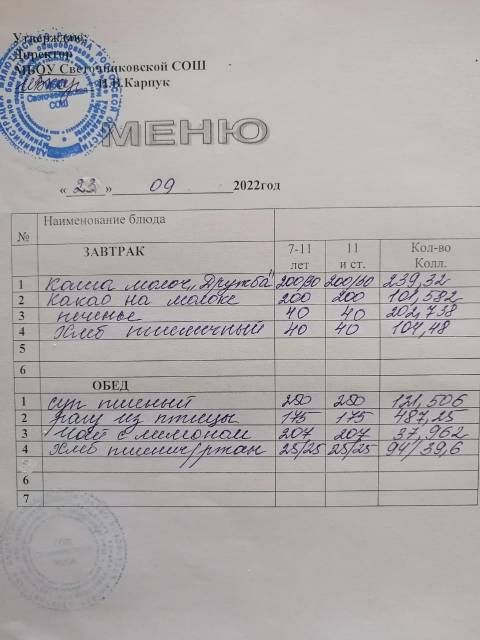 Утверждаю:
Директор
МБОУ Светочниковской СОШ
И.В.Карпук
МЕНЮ
« 23 » 09 2022год
№ Наименование блюда
ЗАВТРАК 7-11 лет 11 и ст. Кол-во Колл.
1 Каша молоч „Дружба" 200/30 200/30 239,32
2 Какао на молоке 200 200 101,582
3 печенье 40 40 202,738
4 Хлеб пшеничный 40 40 104,48
5
6
ОБЕД
1 суп пшеный 250 250 121,506
2 рагу из птицы 175 175 487,25
3 Чай с лимоном 207 207 37,962
4 Хлеб пшенич/ржан 25/25 25/25 94/39,6
5
6
7